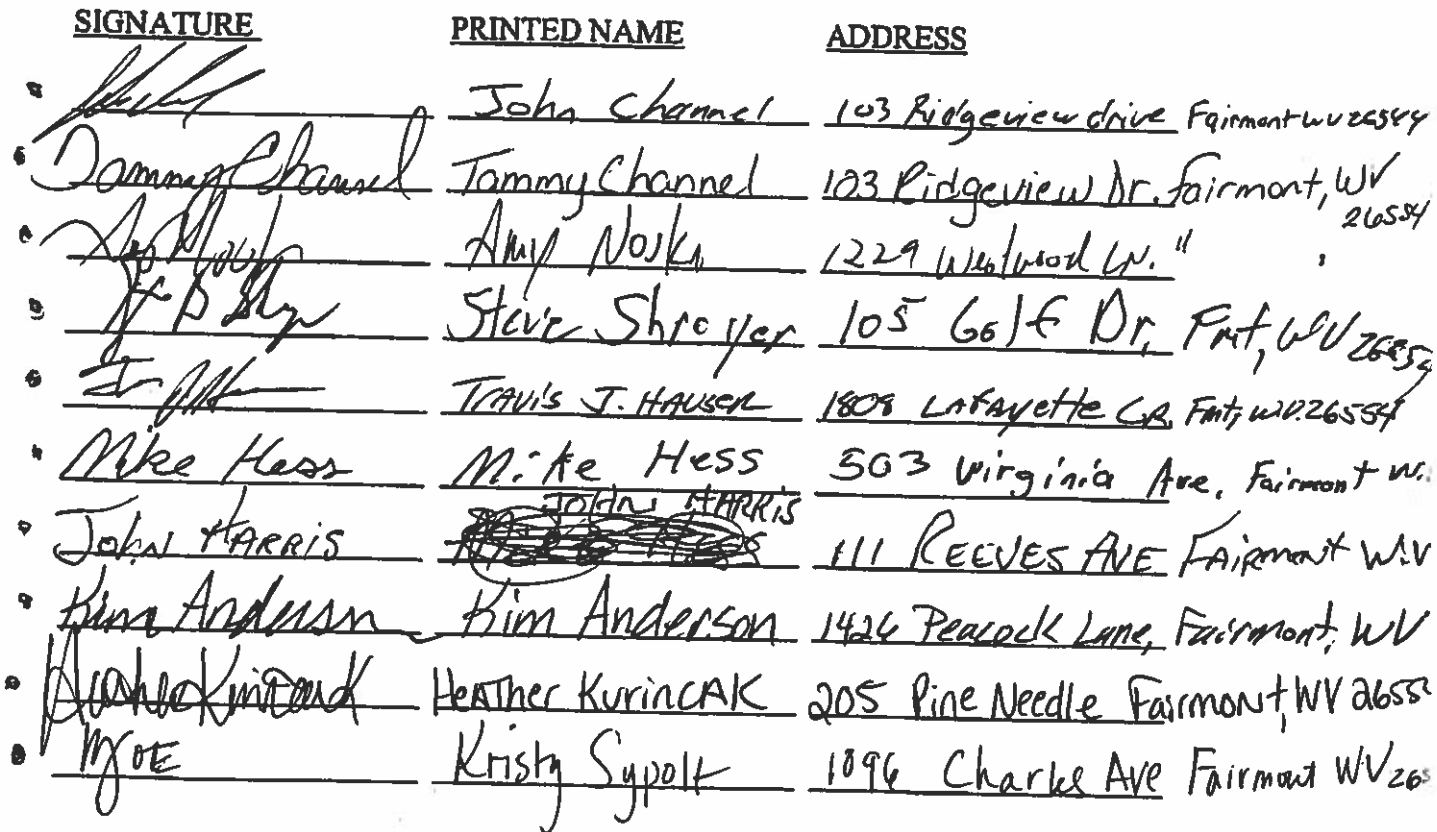 SIGNATURE PRINTED NAME ADDRESS
John Channel 103 Ridgeview drive Fairmont WV 26554
Tammy Channel Tammy Channel 103 Ridgeview Dr. Fairmont, WV
26554
Amy 1229 Westwood LN. "
Steve Shroyer 105 Golf Dr, Fmt, WV
TRAVIS J. HAUSER 1808 LAFAyette Fmt, WV. 26554
Mike Hess Mike Hess 503 Virginia Ave, Fairmont W.
JOHN HARRIS
John HARRIS 111 REEVES AVE FAIRmont W.V
Kim Anderson Kim Anderson 1426 Peacock Lane, Fairmont, WV
HeATher KurincAK 205 Pine Needle Fairmont, WV 2655
Kristy Sypolt Charles Ave Fairmont WV 26